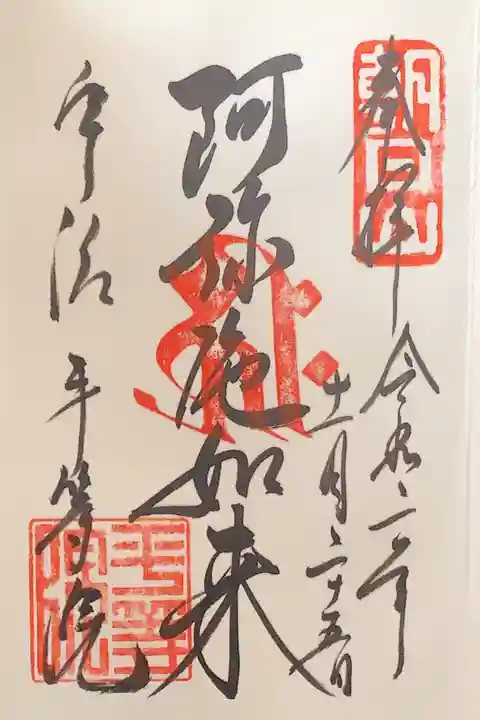 朝日山
奉拝
令和二年
十一月二十五日
阿弥陀如来
宇治 平等院
平等院印